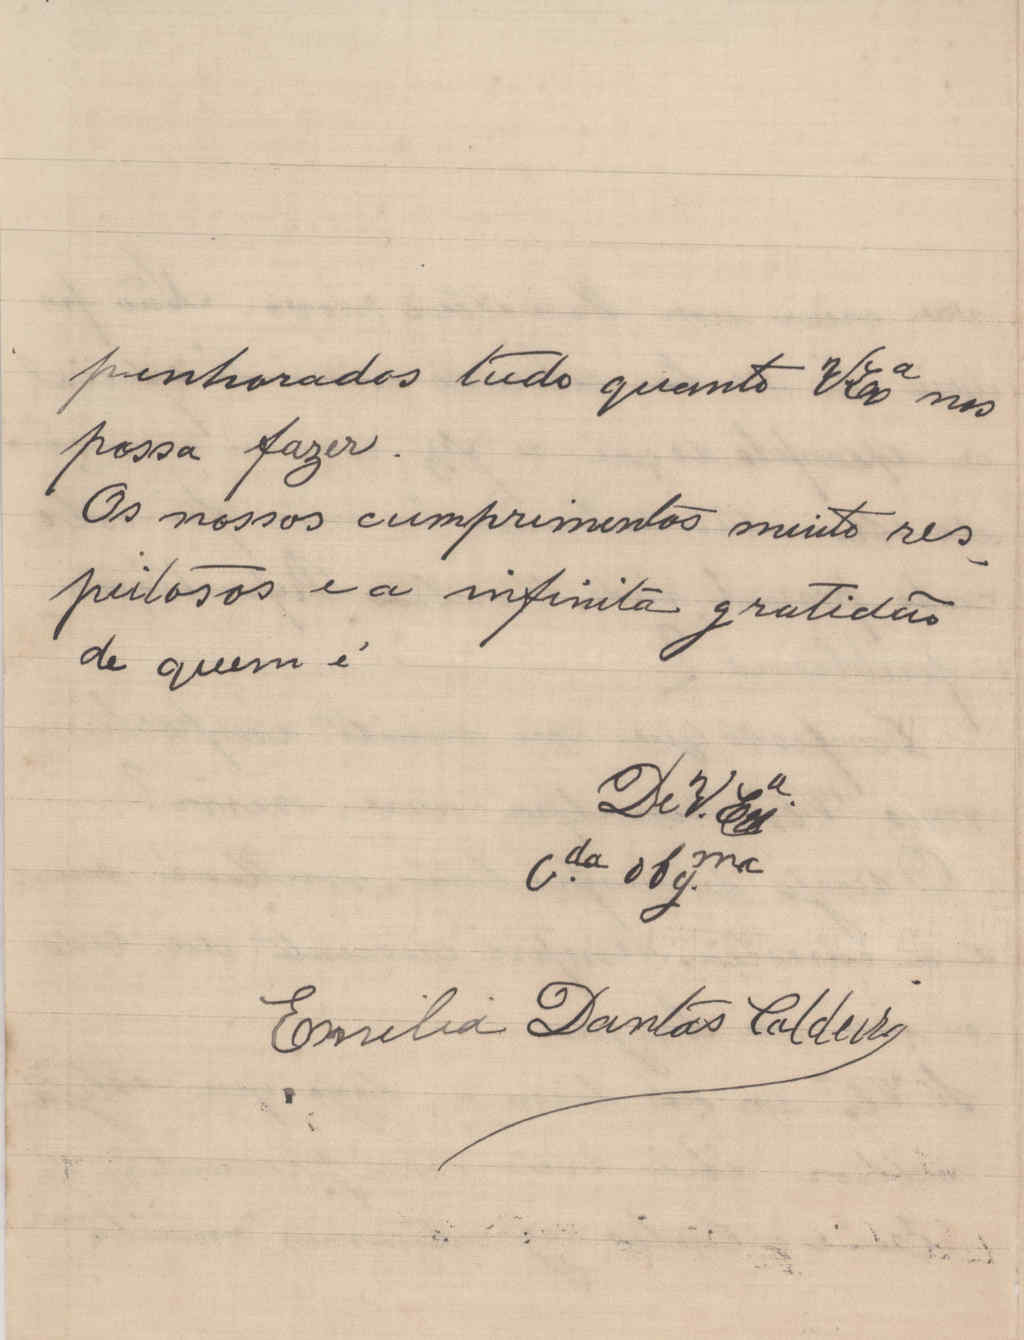 penhorados tudo quanto V. Exª nos
possa fazer.
Os nossos cumprimentos muito res-
peitosos e a infinita gratidão
de quem é
De V. Exª.
C.da obg.ma
Emilia Dantas Caldeira